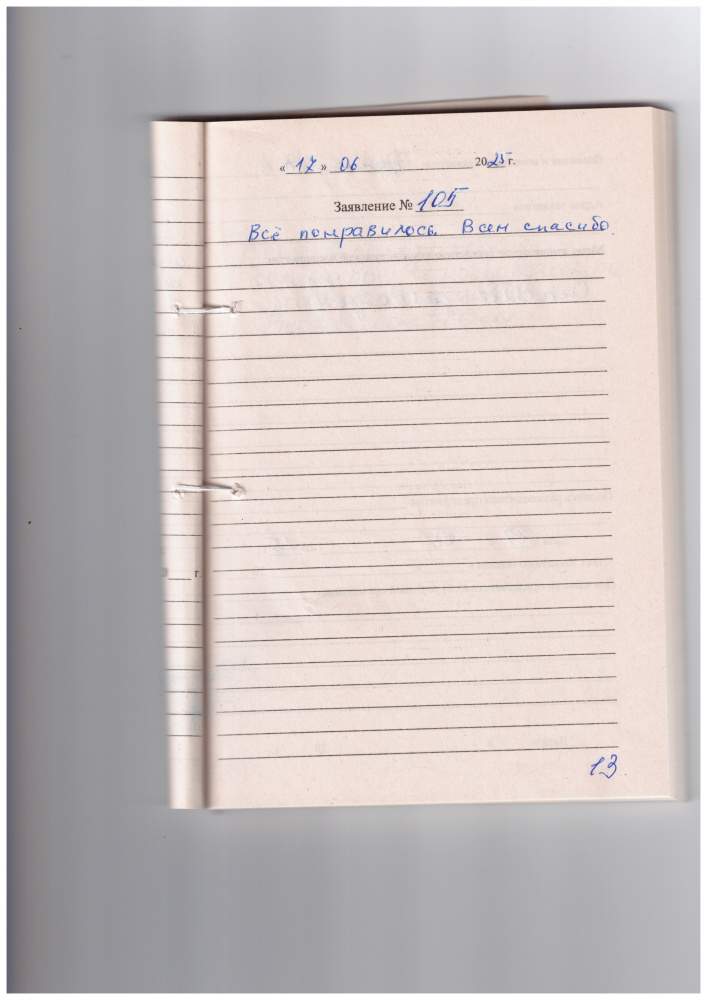 «17» 06 2025 г.
Заявление № 105
Всё понравилось. Всем спасибо.
г.
13